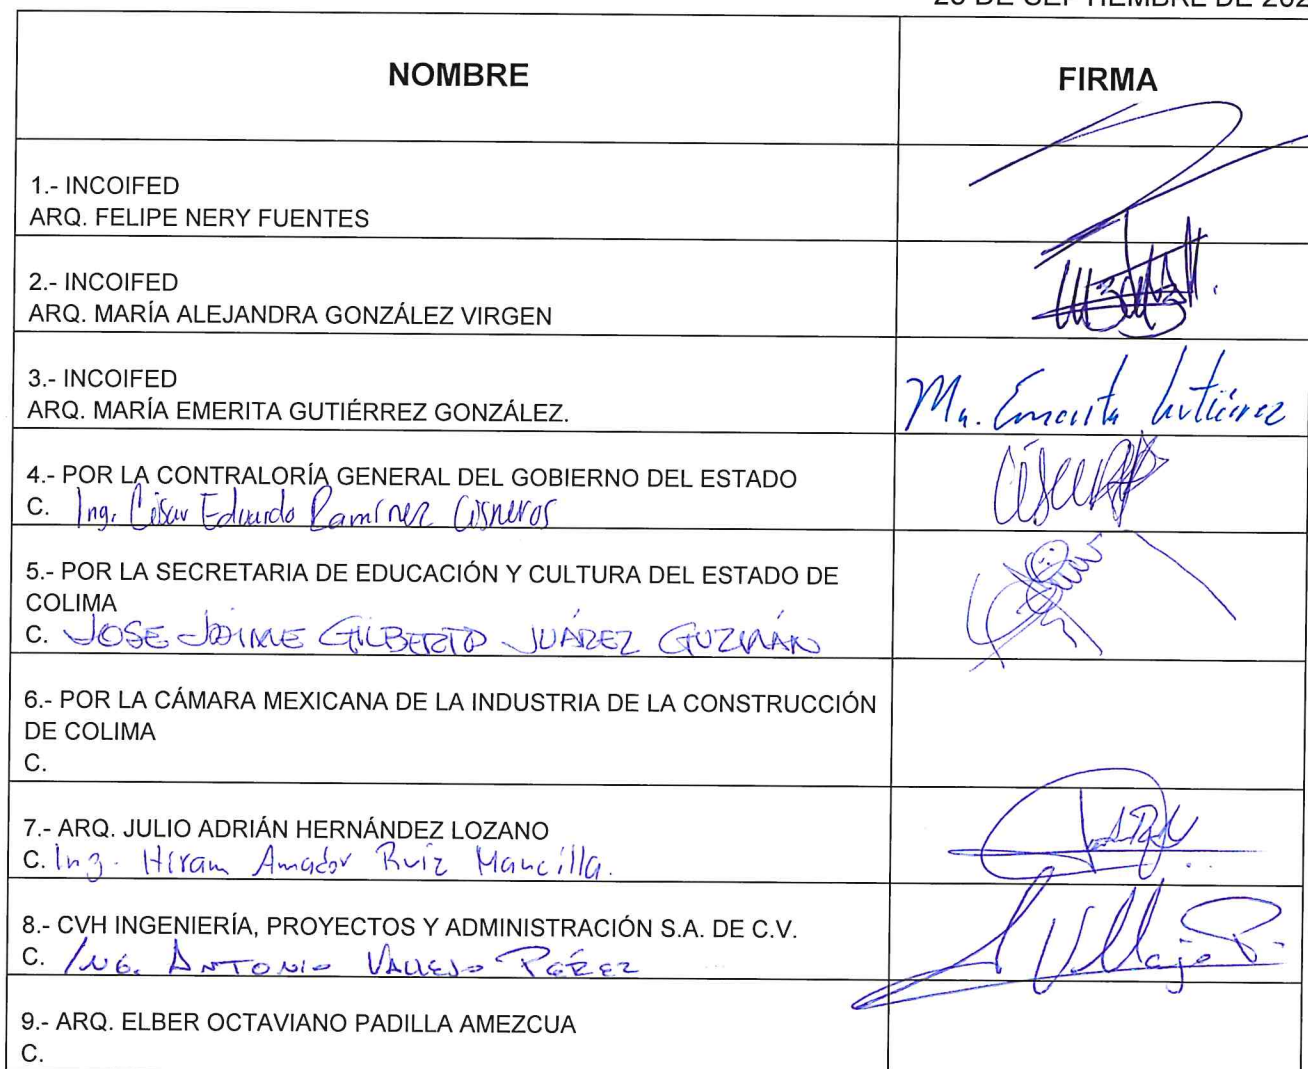 DE SEPTIEMBRE DE 202
NOMBRE
FIRMA
1.- INCOIFED
ARQ. FELIPE NERY FUENTES
2.- INCOIFED
ARQ. MARÍA ALEJANDRA GONZÁLEZ VIRGEN
3.- INCOIFED
ARQ. MARÍA EMERITA GUTIÉRREZ GONZÁLEZ.
Ma. Emerita Gutiérrez
4.- POR LA CONTRALORÍA GENERAL DEL GOBIERNO DEL ESTADO
C. Ing. César Eduardo Ramírez Cisneros
5.- POR LA SECRETARIA DE EDUCACIÓN Y CULTURA DEL ESTADO DE
COLIMA
C. JOSE JAIME GILBERTO JUÁREZ GUZMÁN
6.- POR LA CÁMARA MEXICANA DE LA INDUSTRIA DE LA CONSTRUCCIÓN
DE COLIMA
C.
7.- ARQ. JULIO ADRIÁN HERNÁNDEZ LOZANO
C. Ing. Hiram Amador Ruiz Mancilla.
8.- CVH INGENIERÍA, PROYECTOS Y ADMINISTRACIÓN S.A. DE C.V.
C. ING. ANTONIO VALLEJO PÉREZ
Vallejo P.
9.- ARQ. ELBER OCTAVIANO PADILLA AMEZCUA
C.